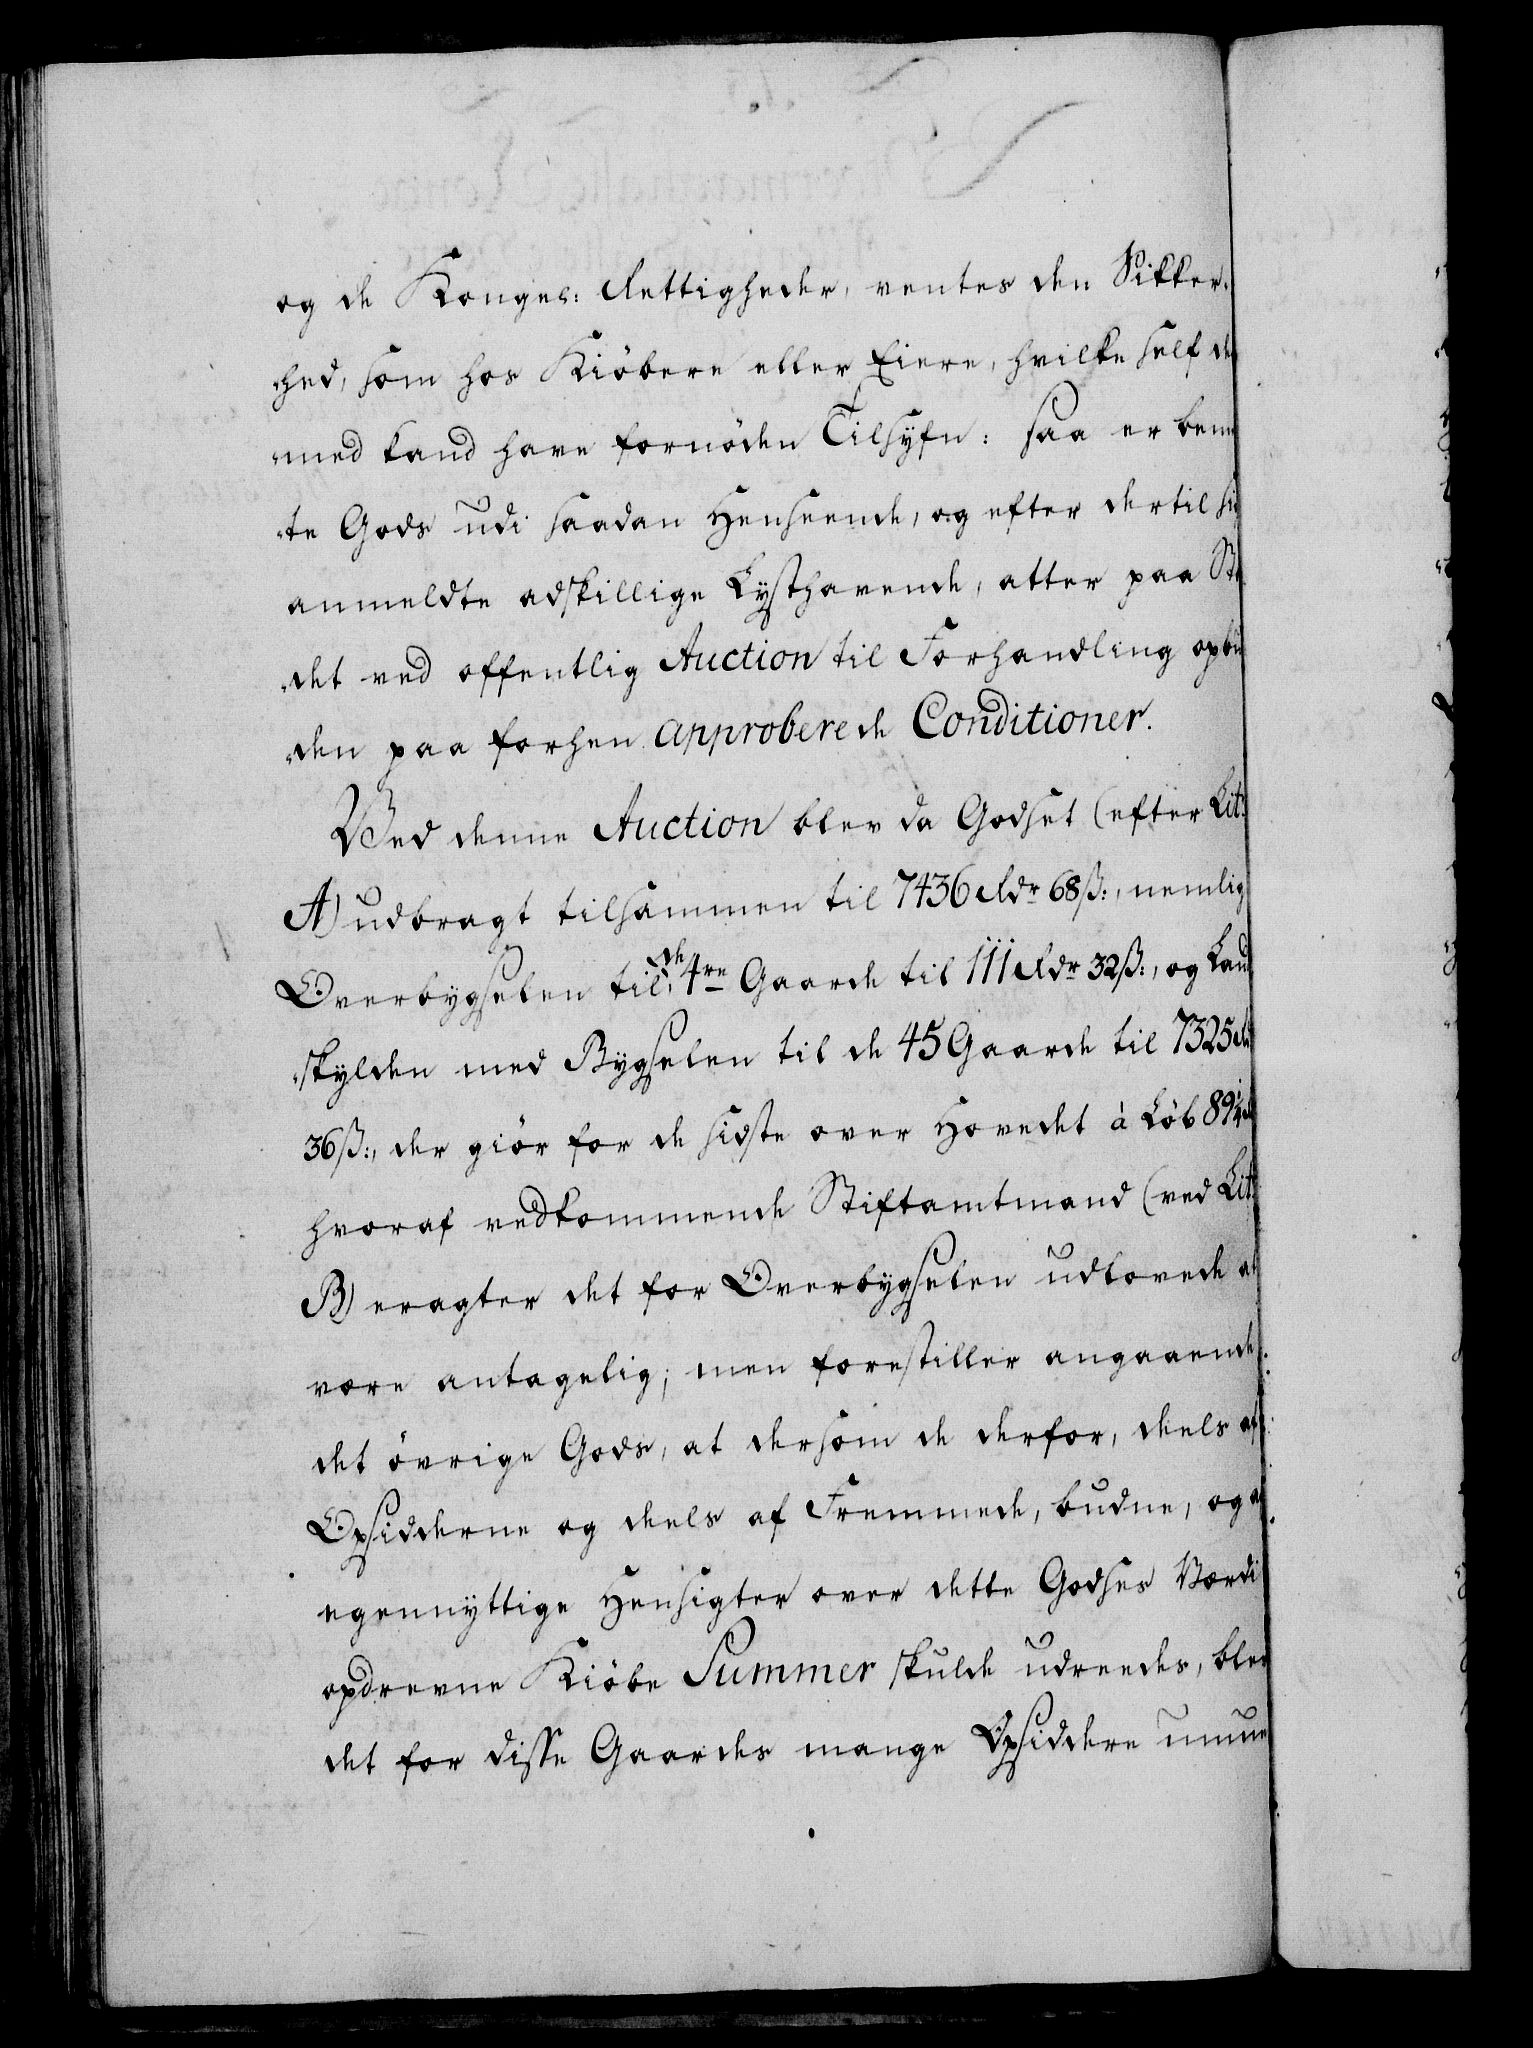 og de Kongel: Rettigheder, ventes den Sikker-
-hed, som hos Kiöbere eller Eiere, hvilke self der
-med kand have fornöden Tilsyfn: saa er bem
-te Gods udi saadan Henseende, og efter dertil
anmeldte adskillige Lysthavende, atter paa Ste
-det ved offentlig Auction til Forhandling opbü
-den paa forhen approberede Conditioner.
Ved denne Auction blev da Godset (efter Lit:
A) udbragt tilsammen til 7436 Rdr 68 ß:, nemlig
Overbygselen til de 4re Gaarde til 111 Rdr 32 ß:, og Land
-skylden med Bygselen til de 45 Gaarde til 7325 Rd
36 ß:, der giör for de sidste over Hovedet à Löb 89¼ R
hvoraf vedkommende Stiftamtmand (ved Lit:
B) eragter det for Overbygselen udlovede at
være antagelig; men forestiller angaaende
det övrige Gods, at dersom de derfor, deels af
Opsidderne og deels af Fremmede, budne, og af
egennyttige Hensigter over dette Godses Værdi
opdrevne Kiöbe Summer skulde udreedes, blev
det for disse Gaardes mange Opsiddere umue